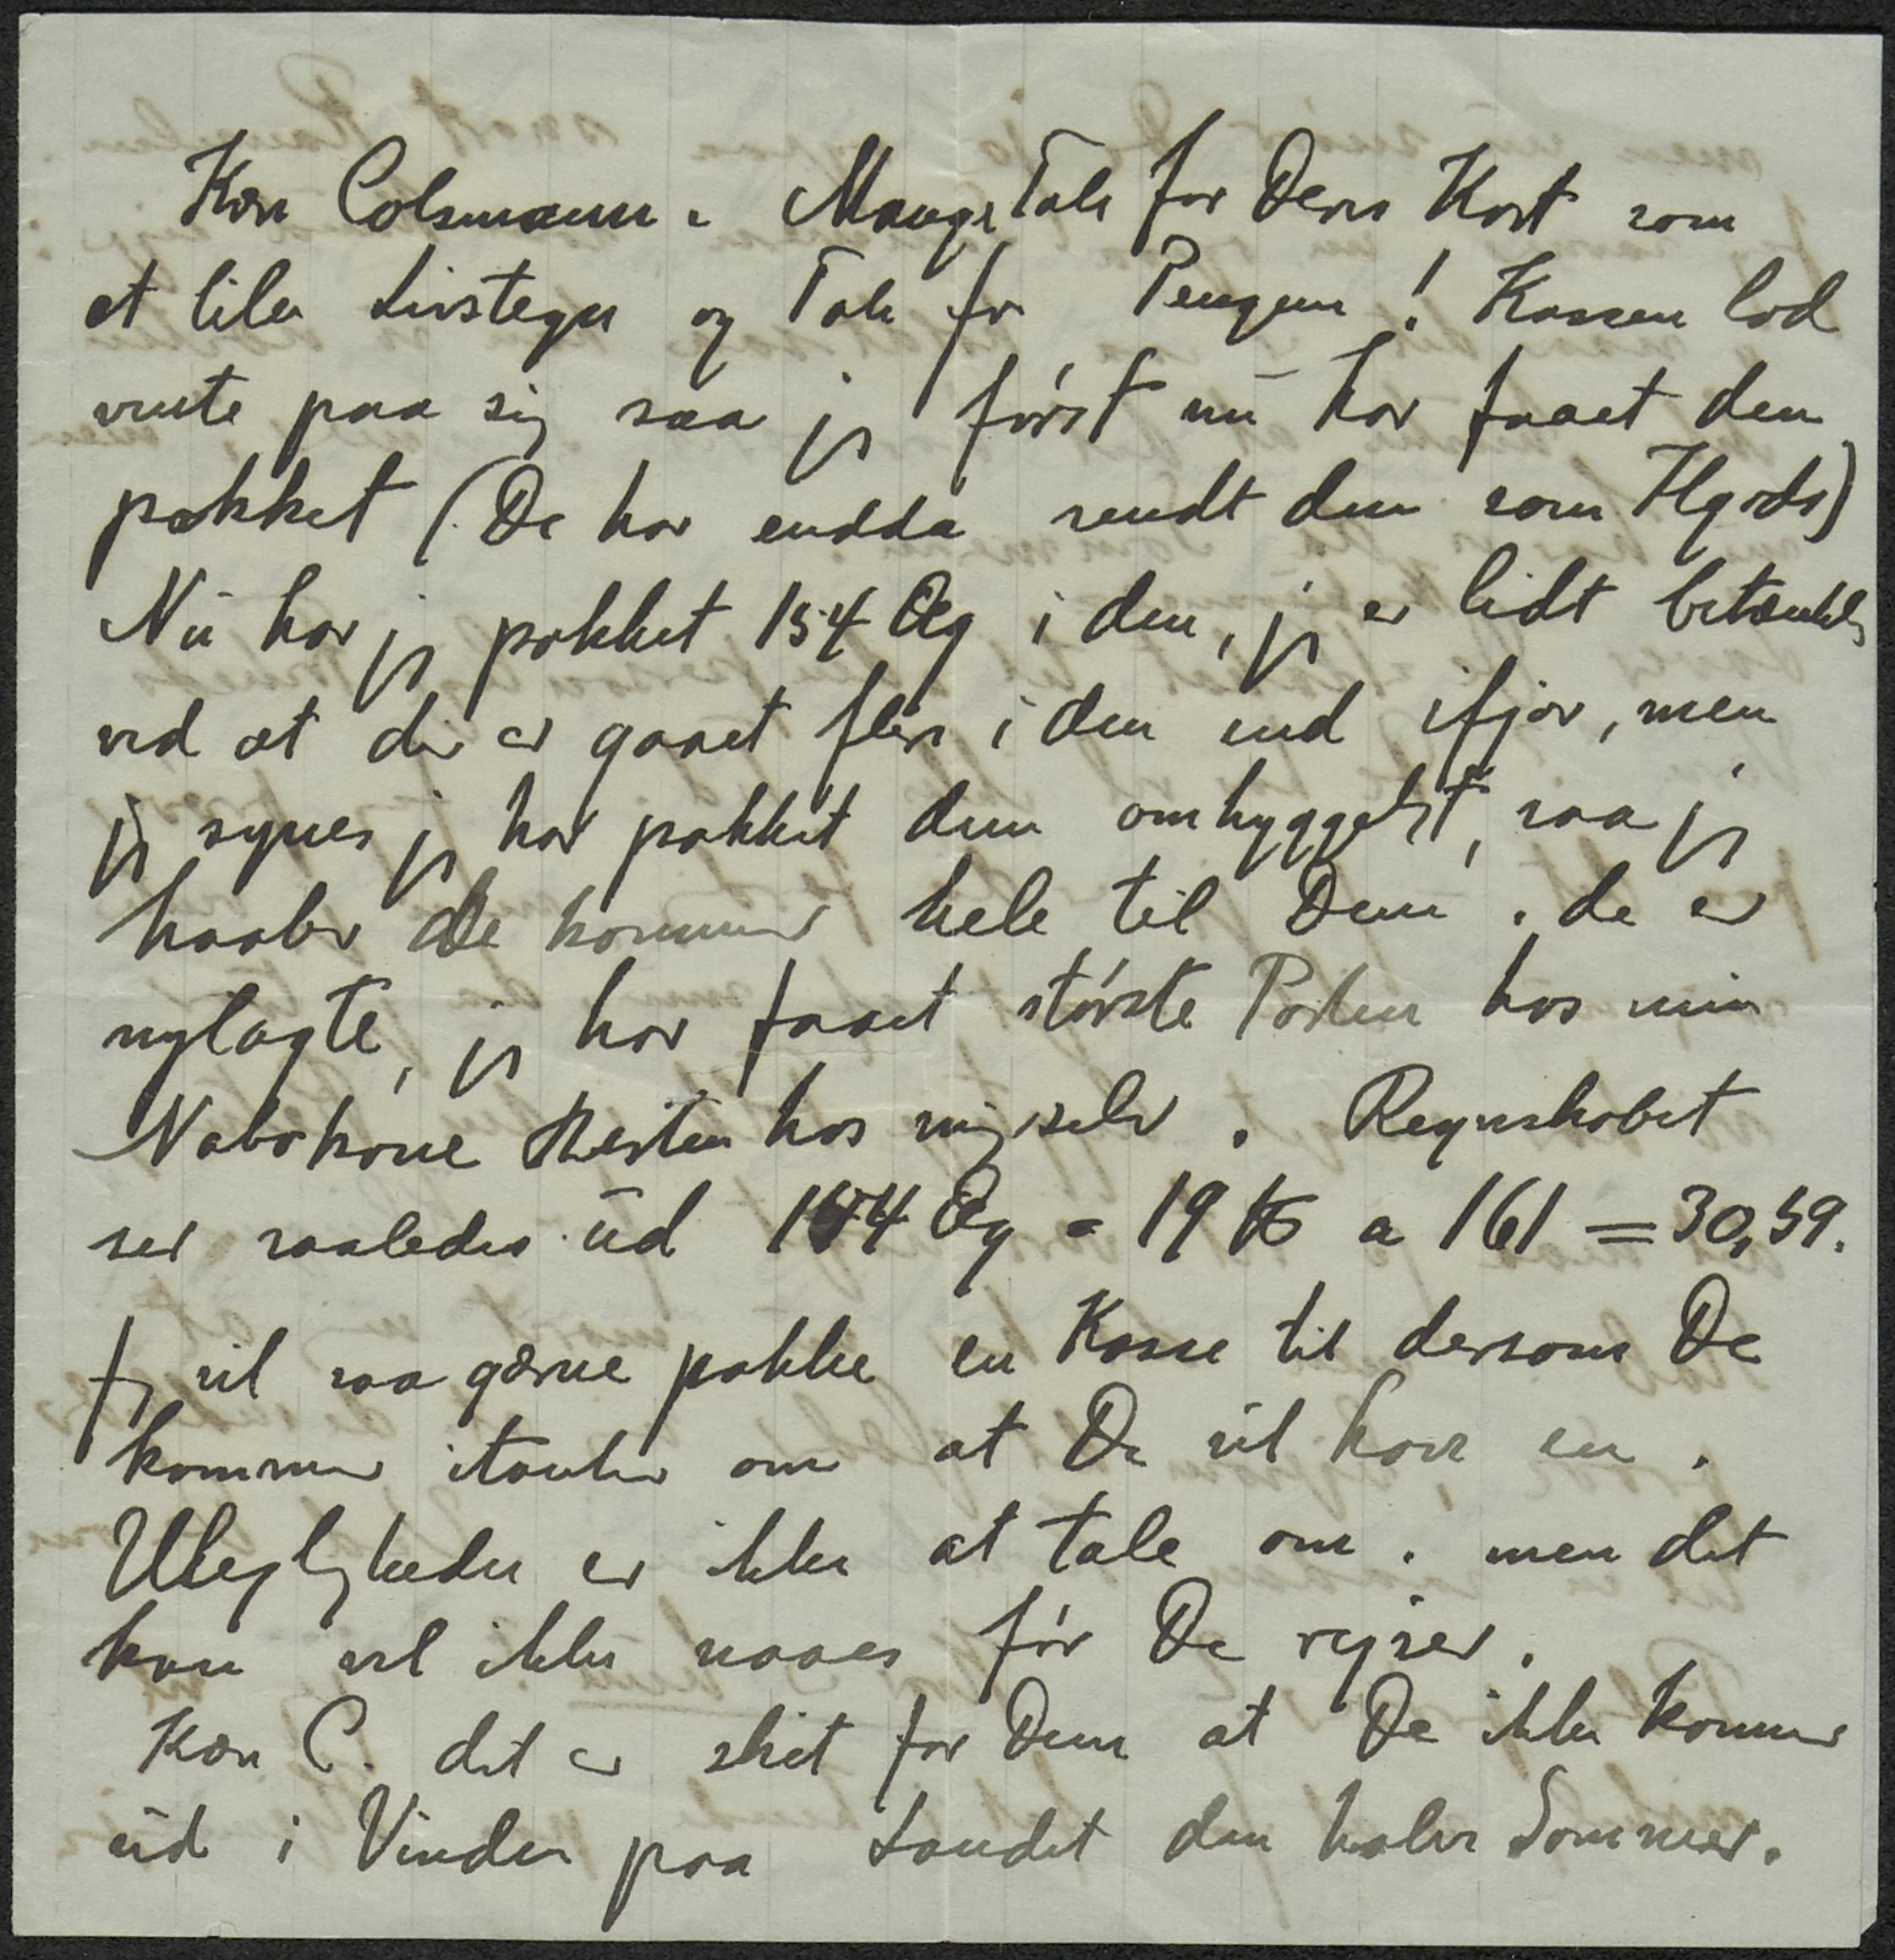 Kære Colsmann. Mange Tak for Deres Kort som
et lille Livstegn og Tak for Pengene! Kassen lod
vente paa sig saa jeg først nu har faaet den
pakket (De har endda sendt den som Ilgods)
Nu har jeg pakket 154 Æg i den, jeg er lidt betænkelig
ved at der er gaaet flere i den end ifjor, men
jeg synes jeg har pakket dem omhyggeligt, saa jeg
haaber de kommer hele til Dem. de er
nylagte, jeg har faaet største Parten hos min
Nabokone Resten hos mig selv. Regnskabet
ser saaledes ud 154 Æg = 19 ℔ a 161 = 30,59.
Jeg vil saa gærne pakke en Kasse til dersom De
kommer itanker om at De vil have en.
Ulejligheden er ikke at tale om. men det
kan vel ikke naaes før De rejser.
Kære C. det er slet for Dem at De ikke kommer
ud i Vinden paa Landet den halve Sommer.